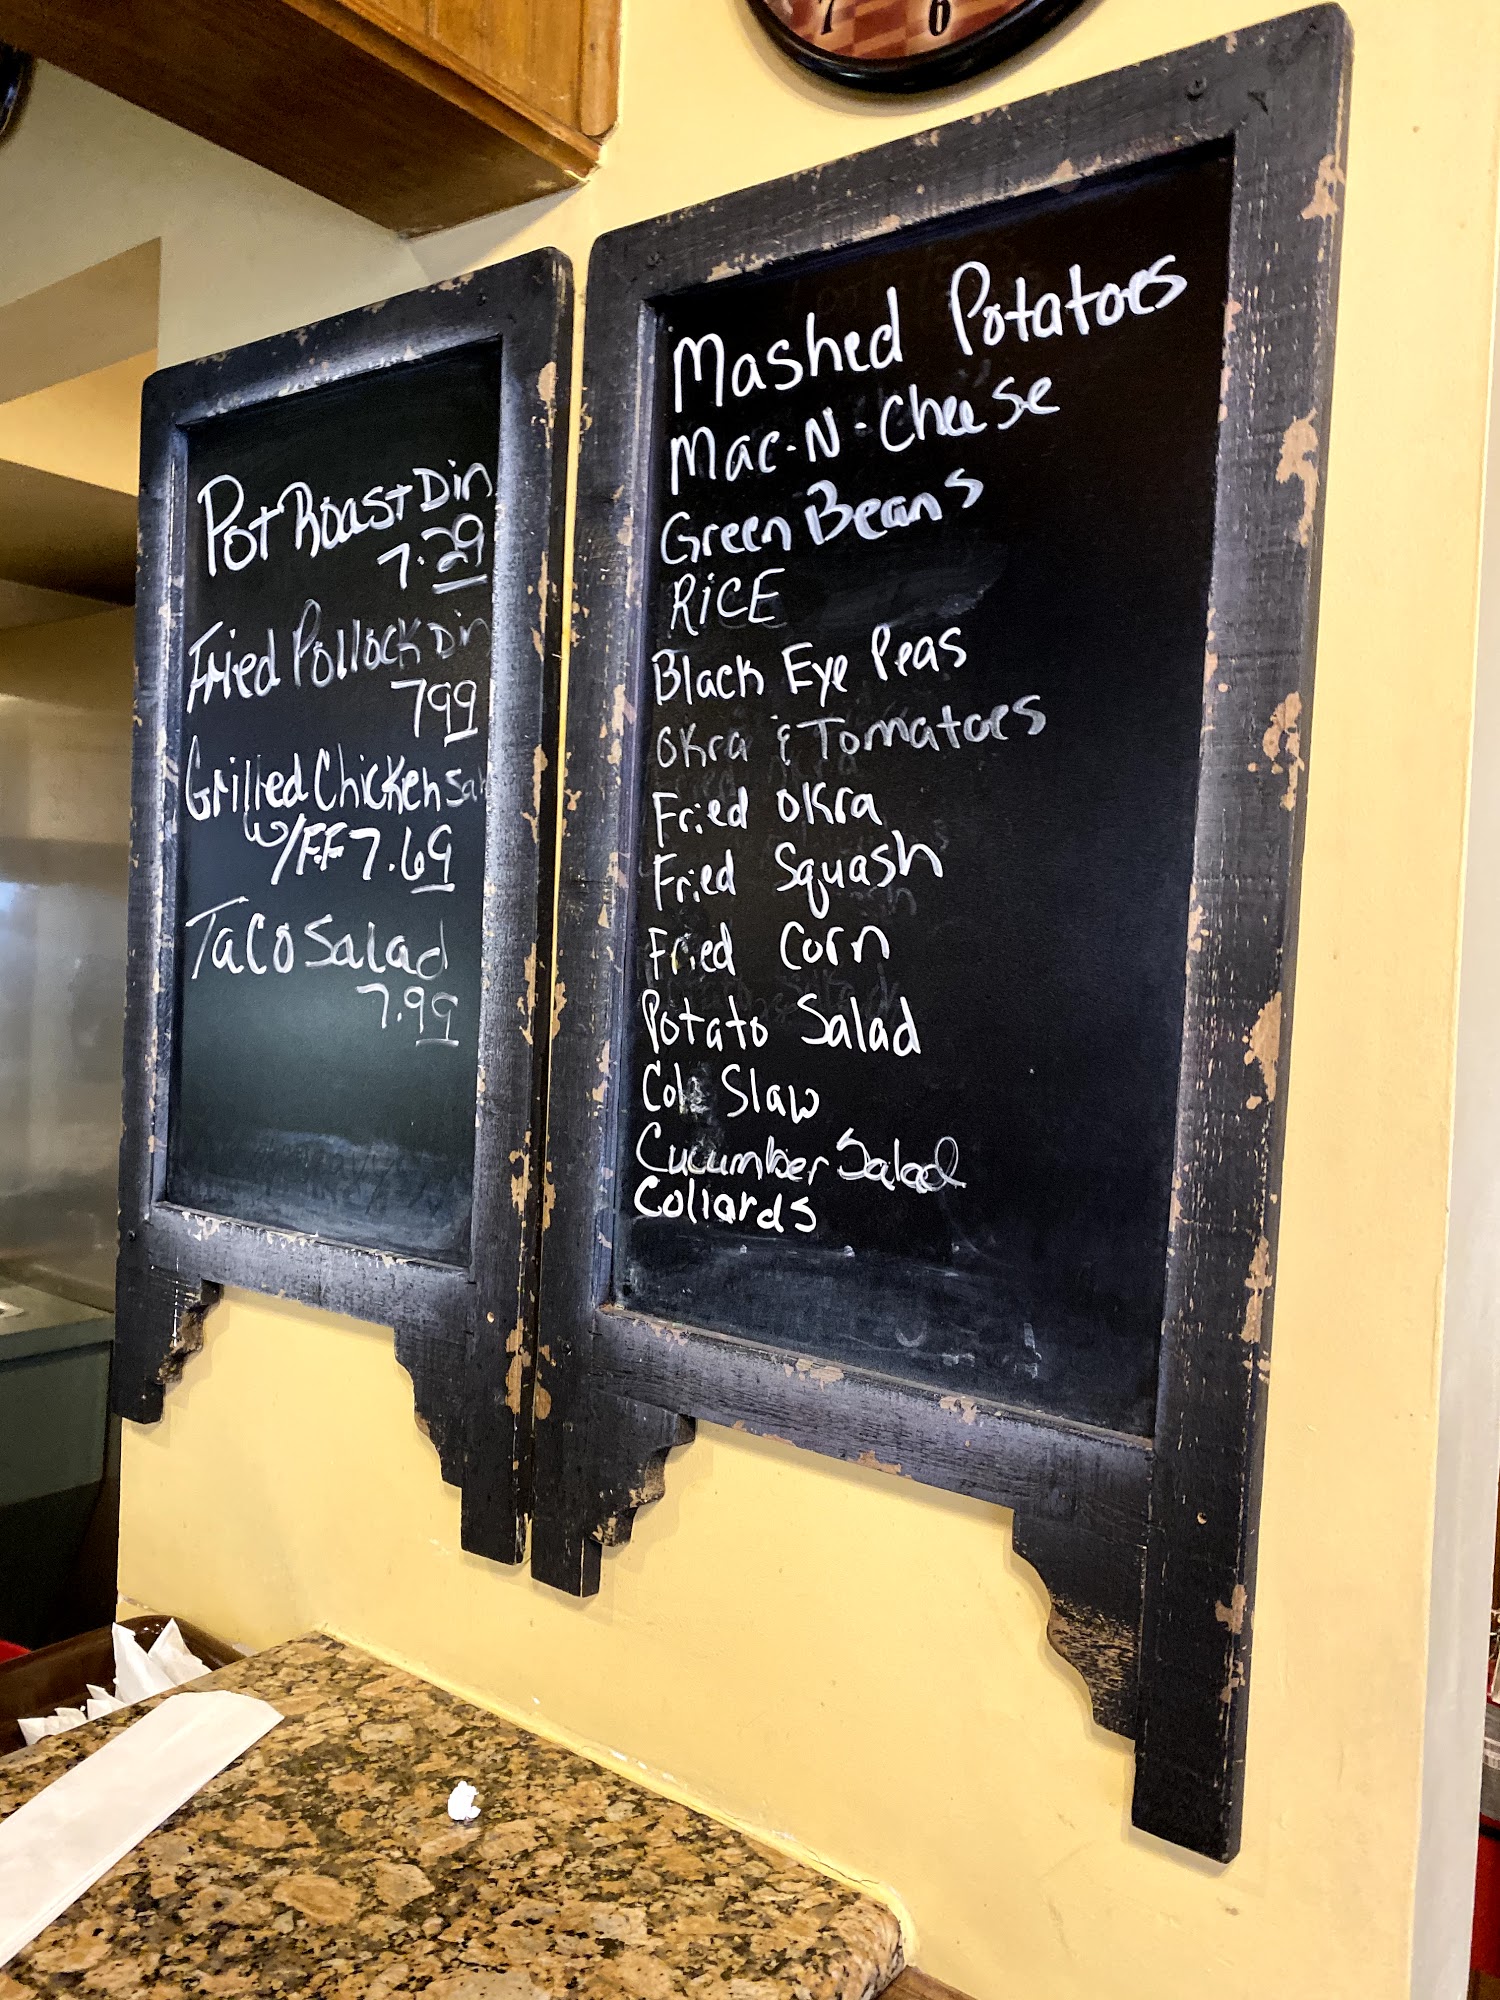 7 6
Pot Roast Din
7.29
Fried Pollock Din
799
Grilled Chicken
w/FF 7.69
Taco Salad
7.99
Mashed Potatoes
Mac-N-Cheese
Green Beans
RiCE
Black Eye Peas
Okra & Tomatoes
Fried Okra
Fried Squash
Fried Corn
Potato Salad
Cole Slaw
Cucumber Salad
Collards